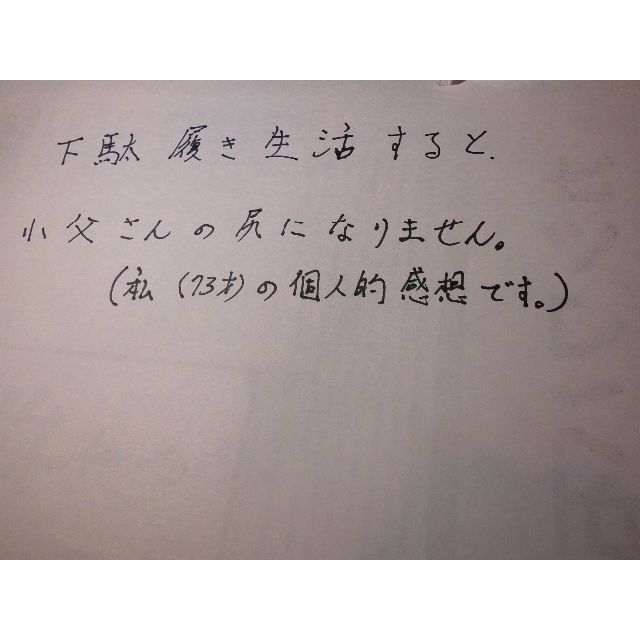 下駄履き生活すると.
小父さんの尻になりません。
(私(73才)の個人的感想です。)